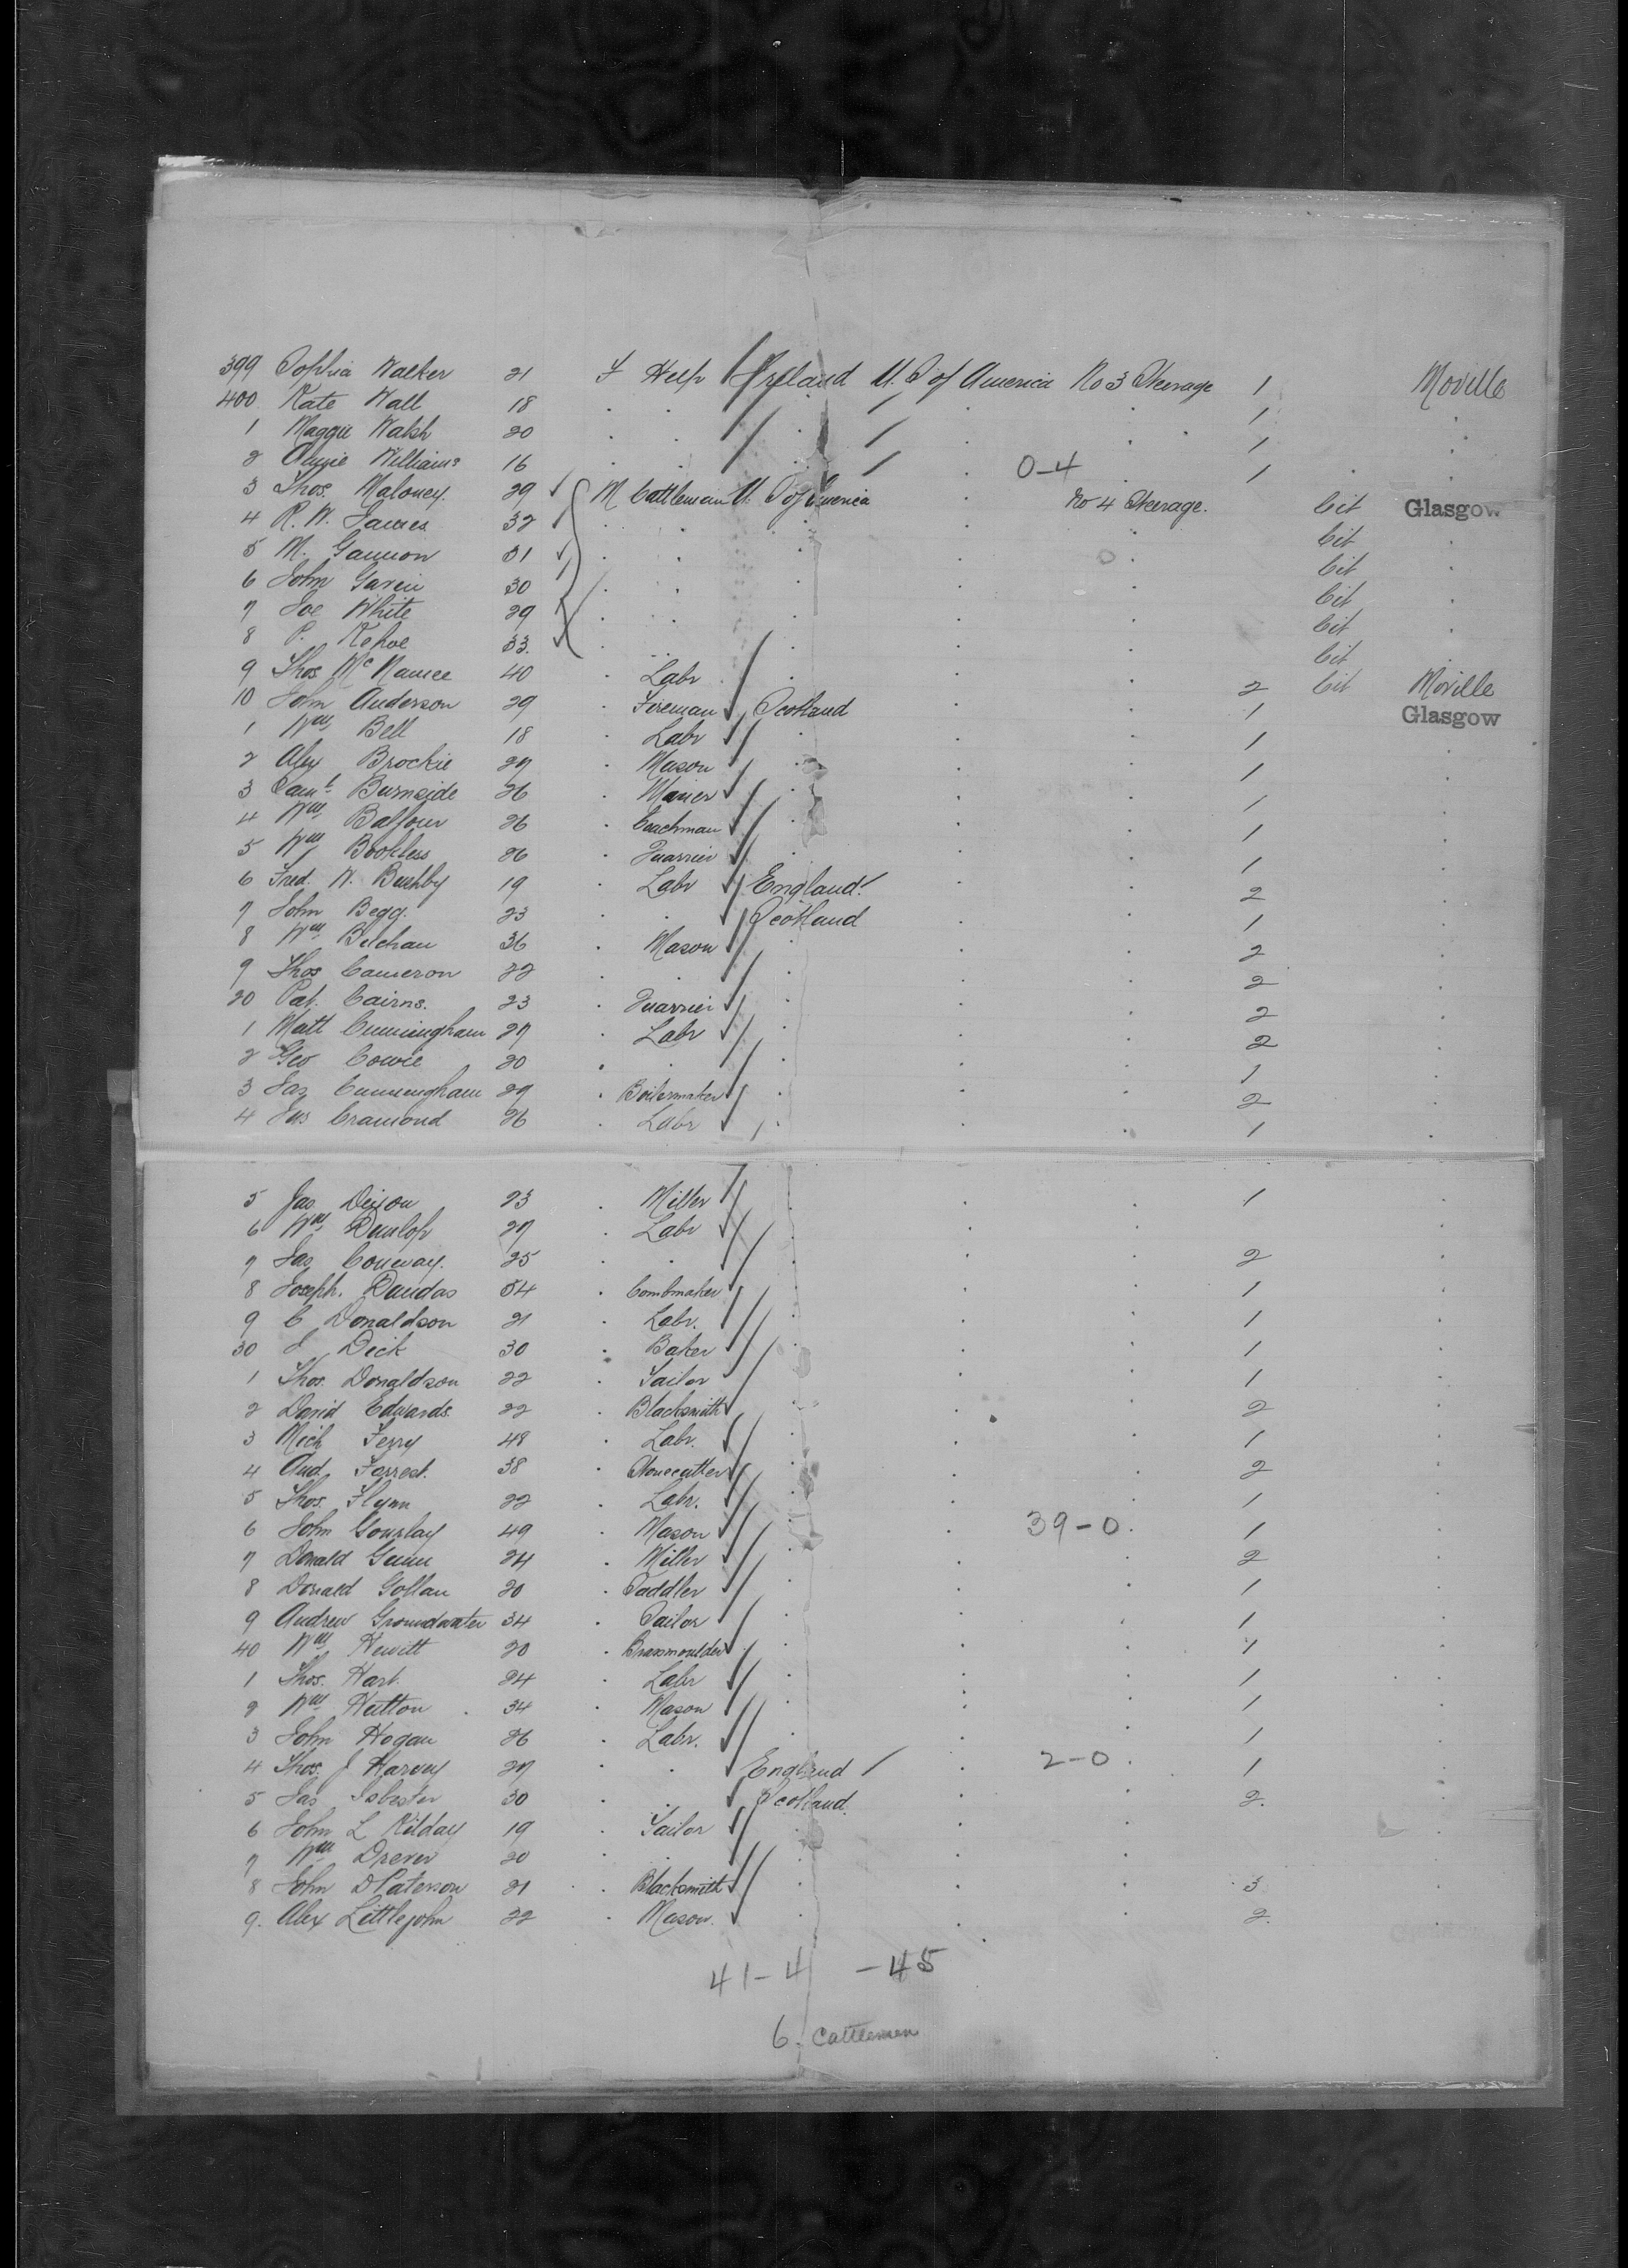 399 Sophia Walker 21 F Help Ireland U. S of America No 3 Steerage 1 Moville
400 Kate Wall 18 . . . 1
1 Maggie Walsh 20 . . . 1
2 Annie Williams 16 . . . 0-4 1
3 Thos. Maloney. 29 M Cattleman U. S of America No 4 Steerage. Cit Glasgow
4 R. W. James 32 . . . Cit
5 M. Gannon 31 . . . Cit
6 John Garvin 30 . . . Cit
7 Joe White 29 . . . Cit
8 P. Kehoe 33. . . . Cit
9 Thos McNamee 40 . Labr . 2 Cit Moville
10 John Anderson 29 . Fireman Scotland 1 Glasgow
1 Wm Bell 18 . Labr . 1
2 Alex Brockie 27 . Mason . 1
3 Saml Burnside 26 . . 1
4 Wm Balfour 26 . Coachman . 1
5 Wm Bookless 26 . Quarrier . 1
6 Fred. W. Bushby 19 . Labr England 2
7 John Begg. 23 . . Scotland 1
8 Wm 36 . Mason . 2
9 Thos Cameron 22 . . . 2
20 Pat. Cairns. 23 . Quarrier . 2
1 Matt Cunningham 27 . Labr . 2
2 Geo Cowie 20 . . . 1
3 Jas Cunningham 29 . Boilermaker . 2
4 Jas Cramond 26 . Labr . 1
5 Jas Dixon 23 . Miller . 1
6 Wm Dunlop 27 . Labr .
7 Jas Conway. 25 . . . 2
8 Joseph. Dundas 54 . Combmaker . 1
9 C Donaldson 21 . Labr. . 1
30 J Dick 30 . Baker . 1
1 Thos. Donaldson 22 . Tailor . 1
2 David Edwards. 22 . Blacksmith . 2
3 Mich Ferry 48 . Labr. . 1
4 And. Forrest. 38 . Stonecutter . 2
5 Thos. Flynn 22 . Labr. . 1
6 John Gourlay 49 . Mason . 39-0. 1
7 Donald Gunn 24 . Miller . 2
8 Donald Gollan 20 . Saddler . 1
9 Andrew Groundwater 34 . Sailor . 1
40 Wm Hewitt 20 . Brassmoulder . 1
1 Thos. Hart. 24 . Labr . 1
2 Wm Hutton . 34 . Mason . 1
3 John Hogan 26 . Labr. . 1
4 Thos. J Harvey 27 . . England 2-0. 1
5 Jas Isbister 30 . . Scotland. 2.
6 John L Kilday 19 . Tailor .
7 Wm Drever 20 . . .
8 John D Paterson 21 . Blacksmith . 3
9. Alex Littlejohn 22 . Mason. . 2.
41-4 -45
6. Cattlemen